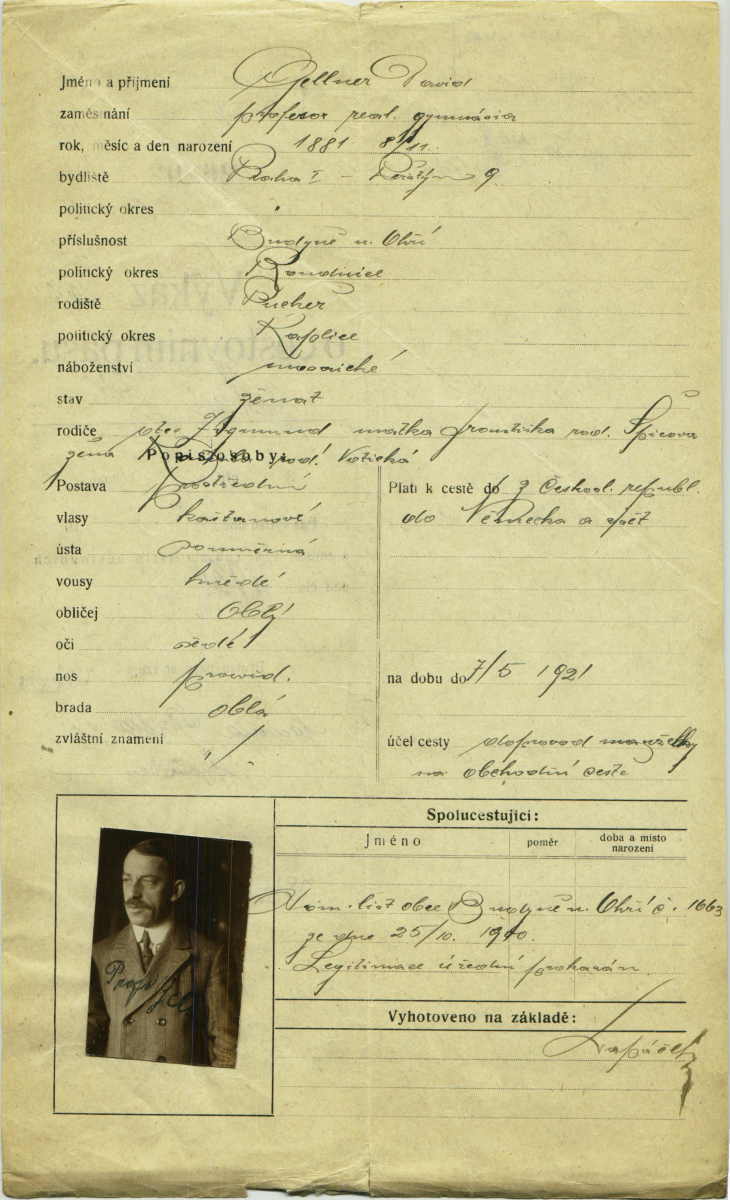 Jméno a příjmení Gellner David
zaměstnání profesor real. gymnásia
rok, měsíc a den narození 1881 8/11.
bydliště Praha I – Perštýn 9.
politický okres
příslušnost Budyně n. Ohří
politický okres Roudnice
rodiště Pucher
politický okres Kaplice
náboženství mosaické
stav ženat
rodiče otec Zigmund matka Františka rod. Šicova
žena rod. Votická
Popis osoby:
Postava prostřední
vlasy kaštanové
ústa souměrná
vousy hnědé
obličej oblý
oči šedé
nos pravid.
brada oblá
zvláštní znamení /.
Platí k cestě do z Českosl. republ.
do Německa a zpět
na dobu do 7/5 1921
účel cesty doprovod manželky
na obchodní cestě
Spolucestující:
Jméno poměr doba a místo narození
Dom. list obce Budyně n. Ohří č. 1663
ze dne 25/10. 1910.
Legitimace úřední prokázán.
Vyhotoveno na základě:
Prof. Gell